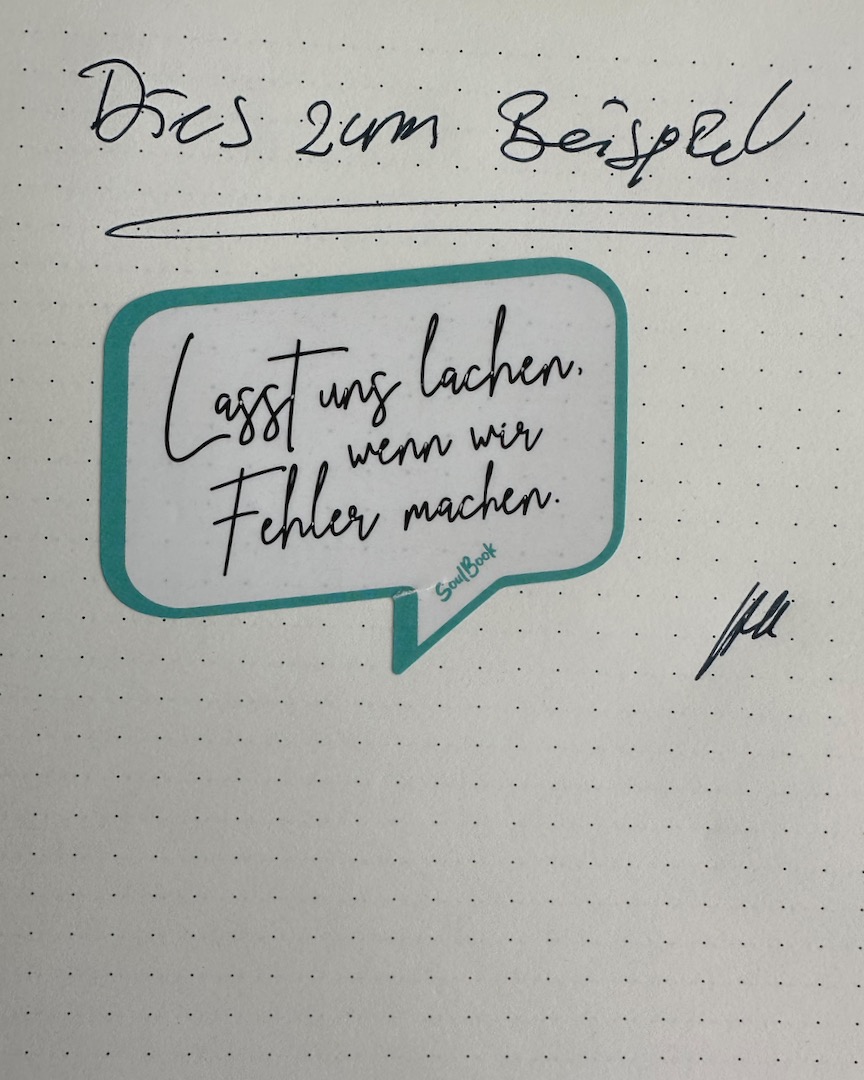 Dies zum Beispiel
Lasst uns lachen,
wenn wir
Fehler machen.
SoulBook